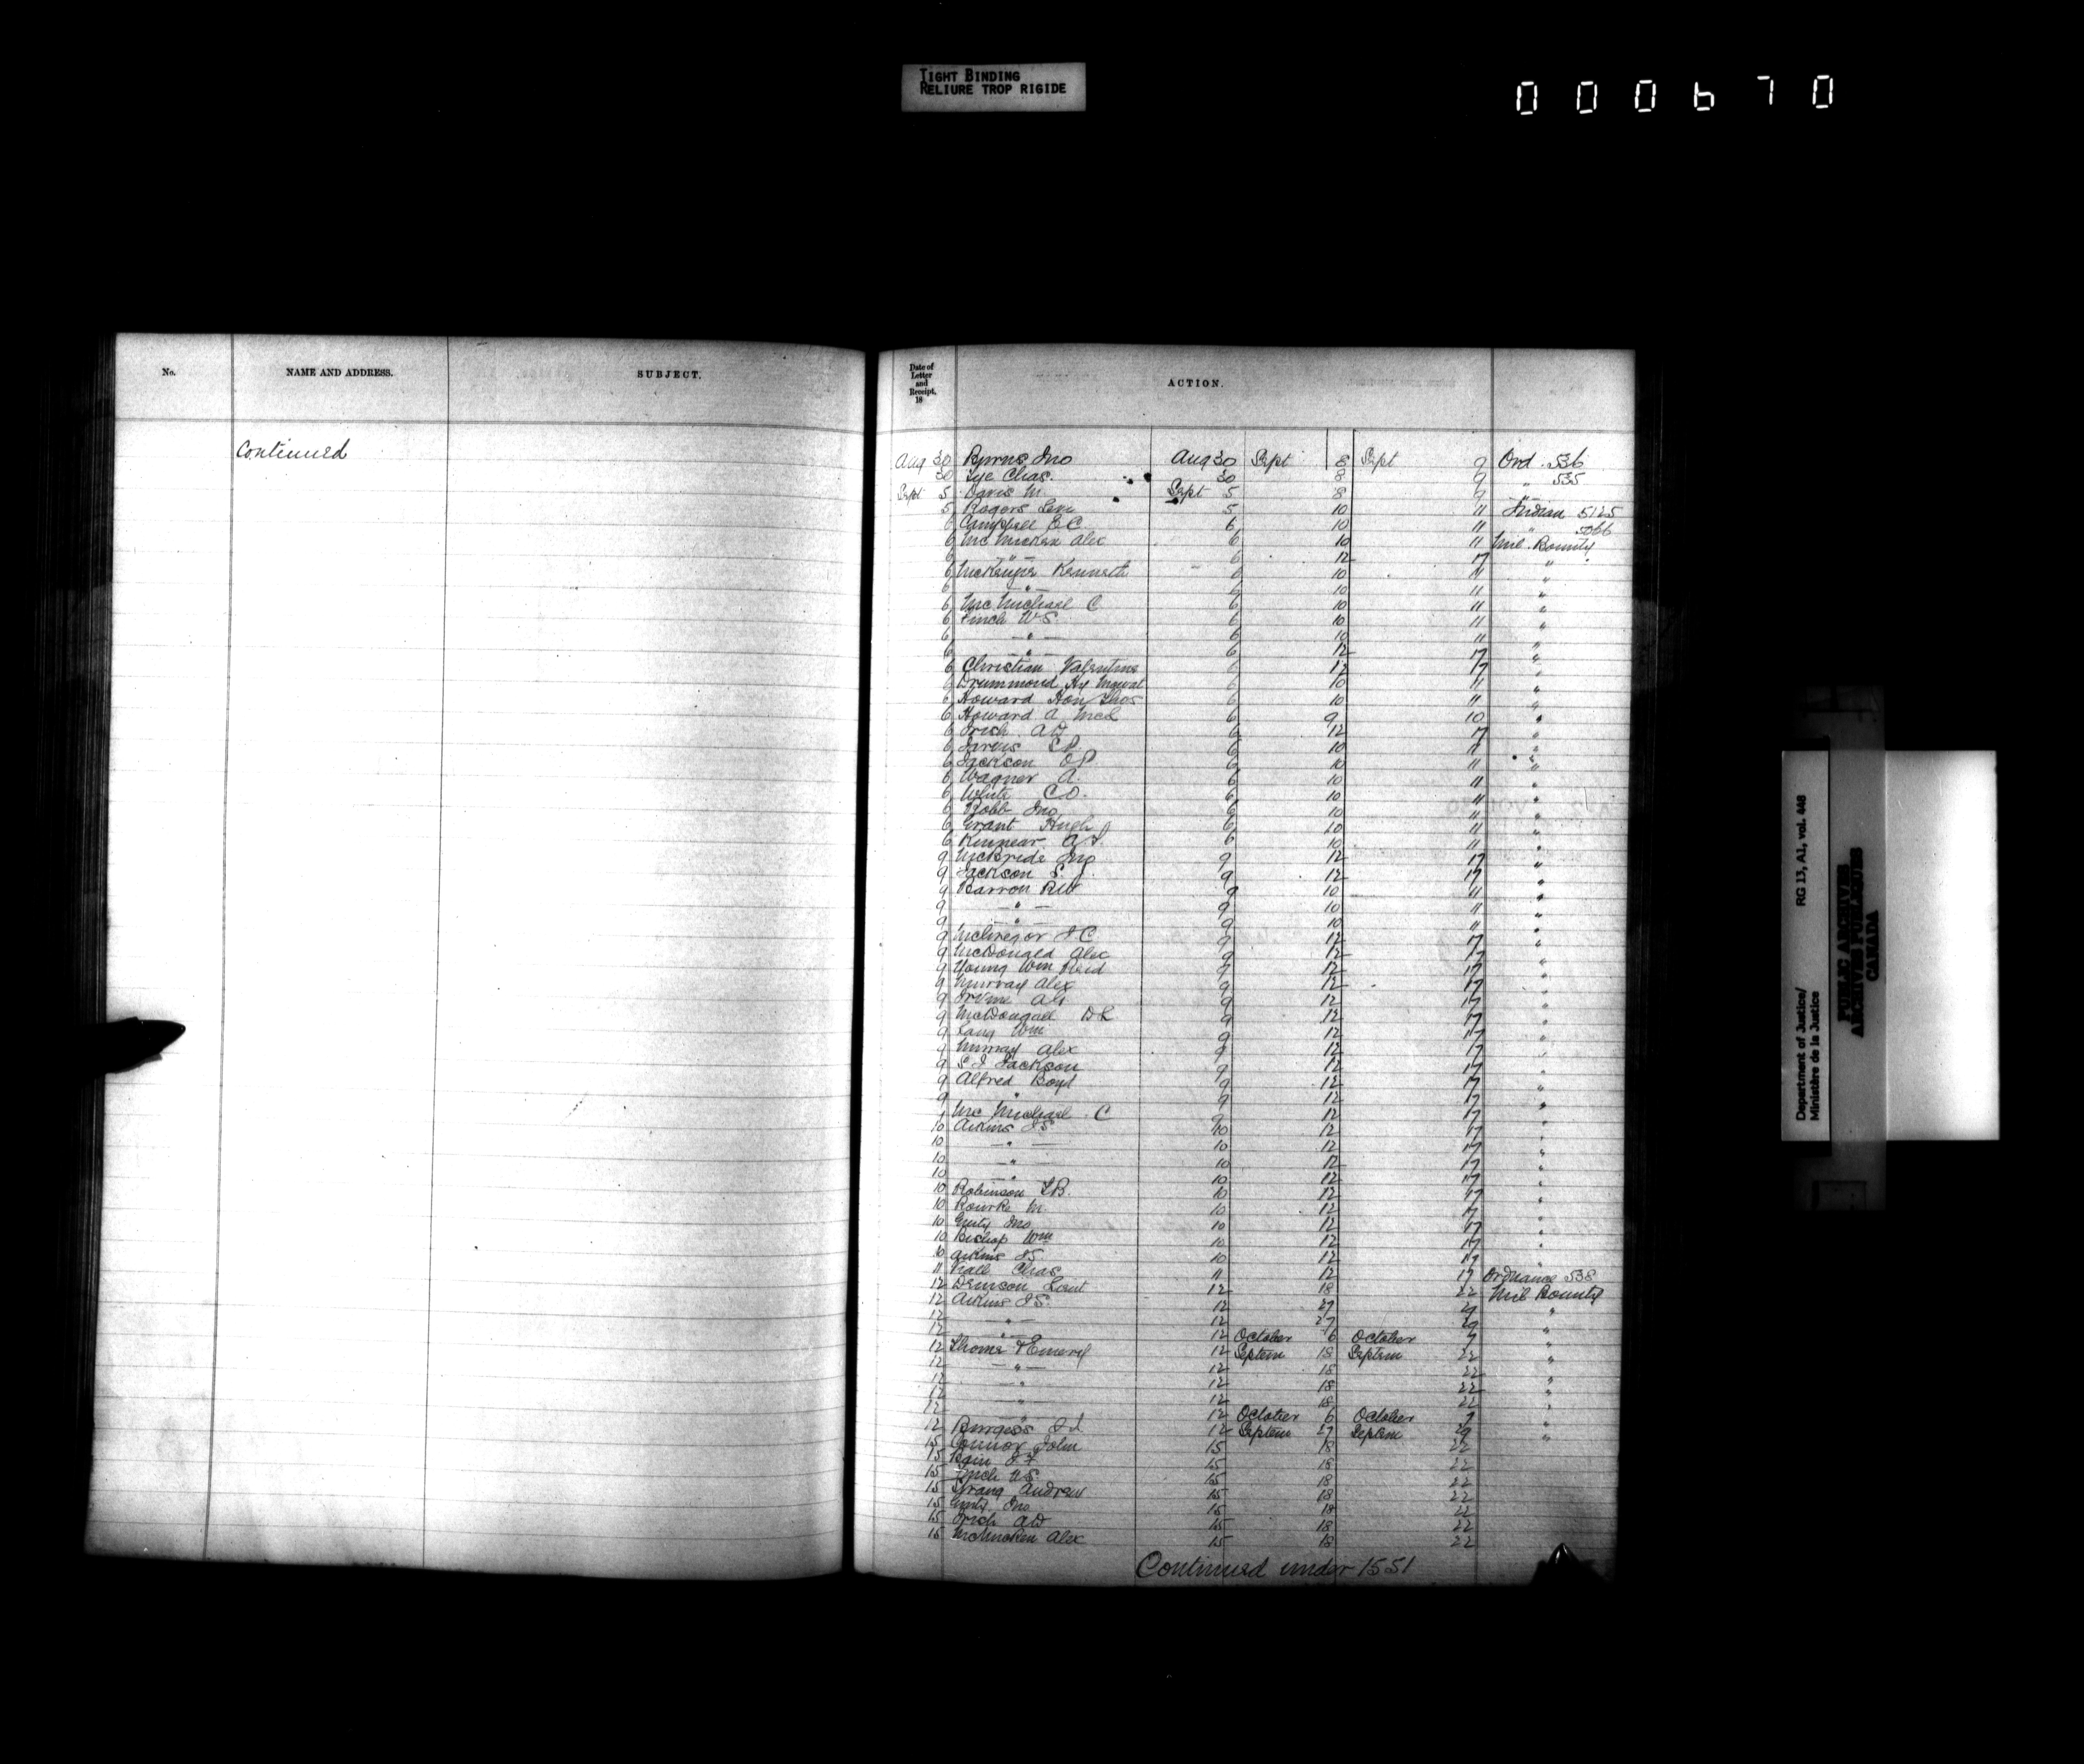 TIGHT BINDING
RELIURE TROP RIGIDE
000670
No. NAME AND ADDRESS. SUBJECT.
Date of Letter and Receipt, 18 ACTION.
Continued
Aug 30 Byrns Jno Aug 30 Sept 8 Sept 9 Ord. 536
30 Lye Chas. 30 8 9 " 535
Sept 5 Davis M Sept 5 8 9 "
5 Rogers Levi 5 10 11 Indian 5125
6 Campbell 6 10 11 " 5066
6 McMicken Alex 6 10 11 Mil. Bounty
6 " 6 12 17 "
6 McKenzie Kenneth 6 10 11 "
6 " 6 10 11 "
6 McMichael C 6 10 11 "
6 Finch WS 6 10 11 "
6 " 6 10 11 "
6 " 6 12 17 "
6 Christian Valentine 6 12 17 "
6 Drummond Hy 6 10 11 "
6 Howard Hon Thos 6 10 11 "
6 Howard A McL 6 9 10 "
6 Irish AW 6 12 17 "
6 Jarvis SP 6 10 11 "
6 Jackson OP 6 10 11 "
6 Wagner A. 6 10 11 "
6 White CO. 6 10 11 "
6 Robb Jno 6 10 11 "
6 Grant Hugh 6 10 11 "
6 Kinnear 6 10 11 "
9 McBride Jno 9 12 17 "
9 Jackson S J. 9 12 17 "
9 Barron RW 9 10 11 "
9 " 9 10 11 "
9 " 9 10 11 "
9 McGregor J C 9 12 17 "
9 McDougald Alex 9 12 17 "
9 Young Wm Reid 9 12 17 "
9 Murray Alex 9 12 17 "
9 Irvine AG 9 12 17 "
9 McDougall D L 9 12 17 "
9 Lang Wm 9 12 17 "
9 Murray Alex 9 12 17 "
9 S J Jackson 9 12 17 "
9 Alfred Boyd 9 12 17 "
9 " 9 12 17 "
9 McMichael C 9 12 17 "
10 Aikins JS 10 12 17 "
10 " 10 12 17 "
10 " 10 12 17 "
10 " 10 12 17 "
10 Robinson TB. 10 12 17 "
10 Rourke M. 10 12 17 "
10 Jno 10 12 17 "
10 Bishop Wm 10 12 17 "
10 Aikins JS 10 12 17 "
11 Chas 11 12 17 Ordnance 538
12 Denison Lout 12 18 22 Mil Bounty
12 Aikins JS. 12 27 29 "
12 " 12 27 29 "
12 " 12 October 6 October 7 "
12 Thoms & Emerey 12 Septem 18 Septem 22 "
12 " 12 18 22 "
12 " 12 18 22 "
12 " 12 18 22 "
12 " 12 October 6 October 7 "
12 Burgess 12 Septem 27 Septem 29 "
15 Connor John 15 18 22
15 Bain 15 18 22
15 Finch WS. 15 18 22
15 Strang Andrew 15 18 22
15 Jno 15 18 22
15 Irish AW 15 18 22
15 McMicken Alex 15 18 22
Continued under 1551
Department of Justice/ RG 13, A1, vol. 448
Ministère de la Justice
PUBLIC ARCHIVES
ARCHIVES PUBLIQUES
CANADA